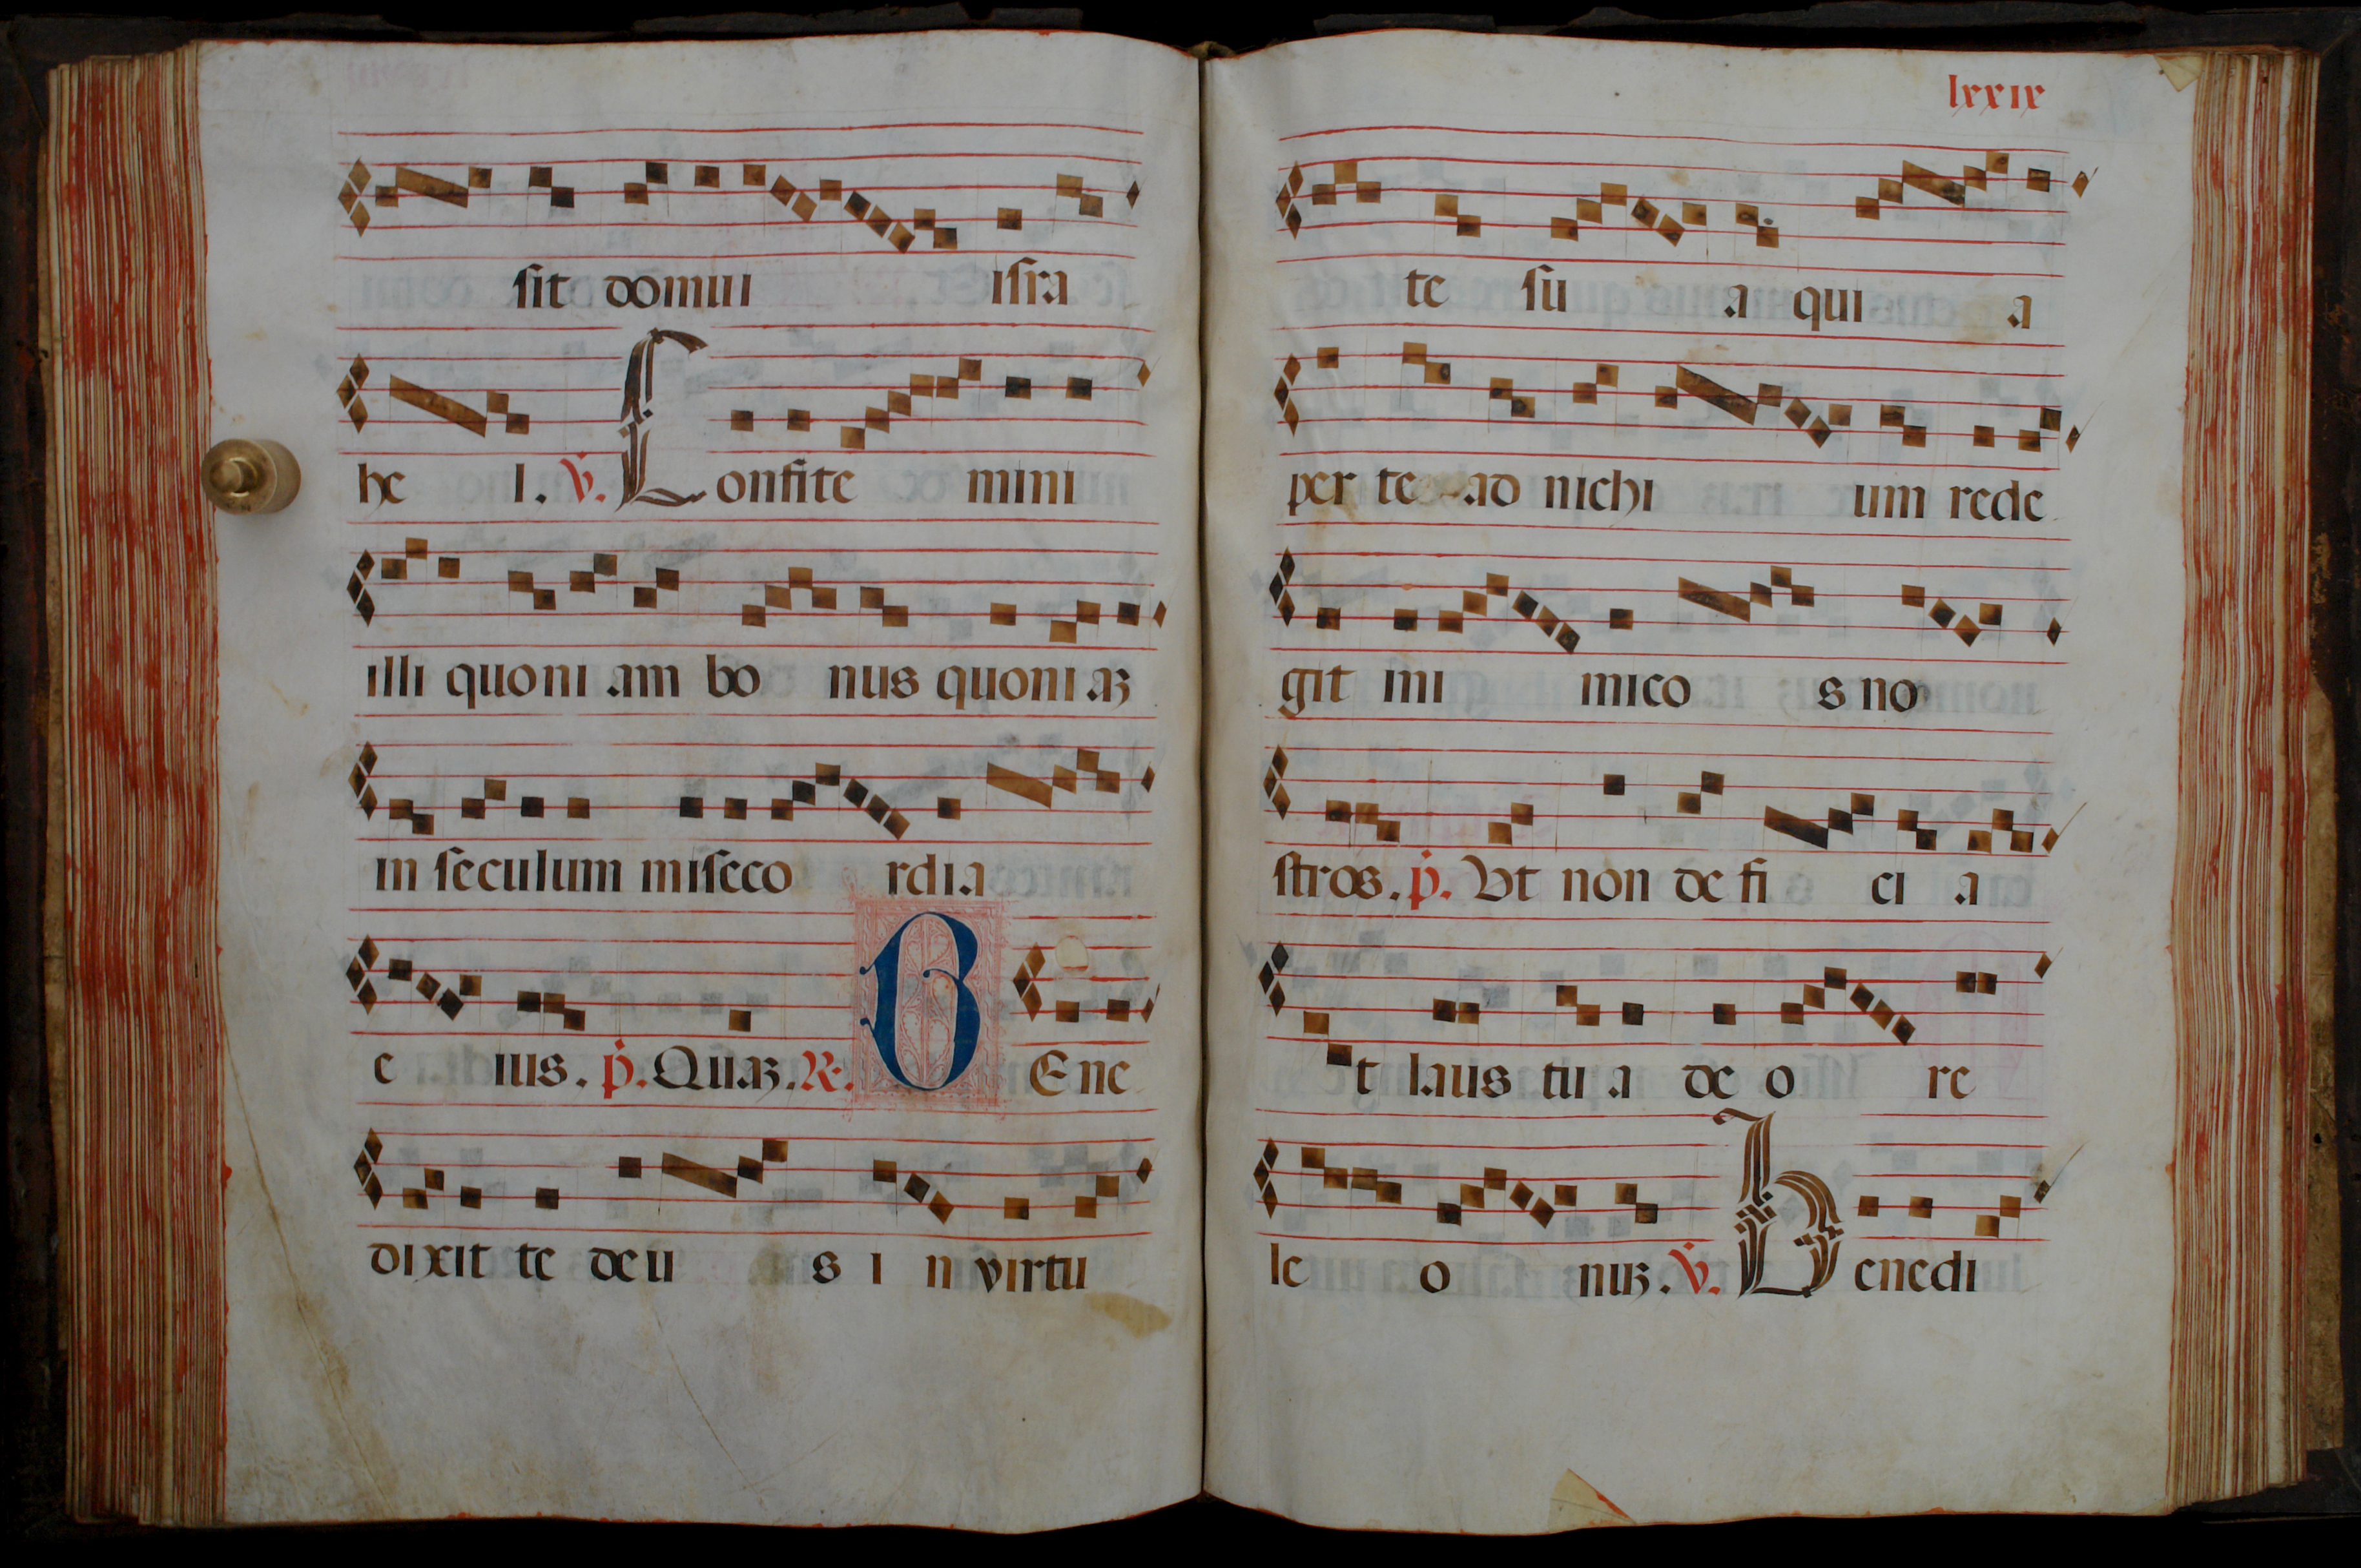 sit domui isra
he l. v. Confite mini
illi quoni am bo nus quoni aꝫ
in seculum miseco rdia
e ius. p. Quaꝫ. R. B Ene
dixit te deu s i n virtu
lxxix
te su a qui a
per te ad nichi um rede
git ini mico s no
stros. p. Ut non de fi ci a
t laus tu a de o re
le o nuꝫ. v. Benedi